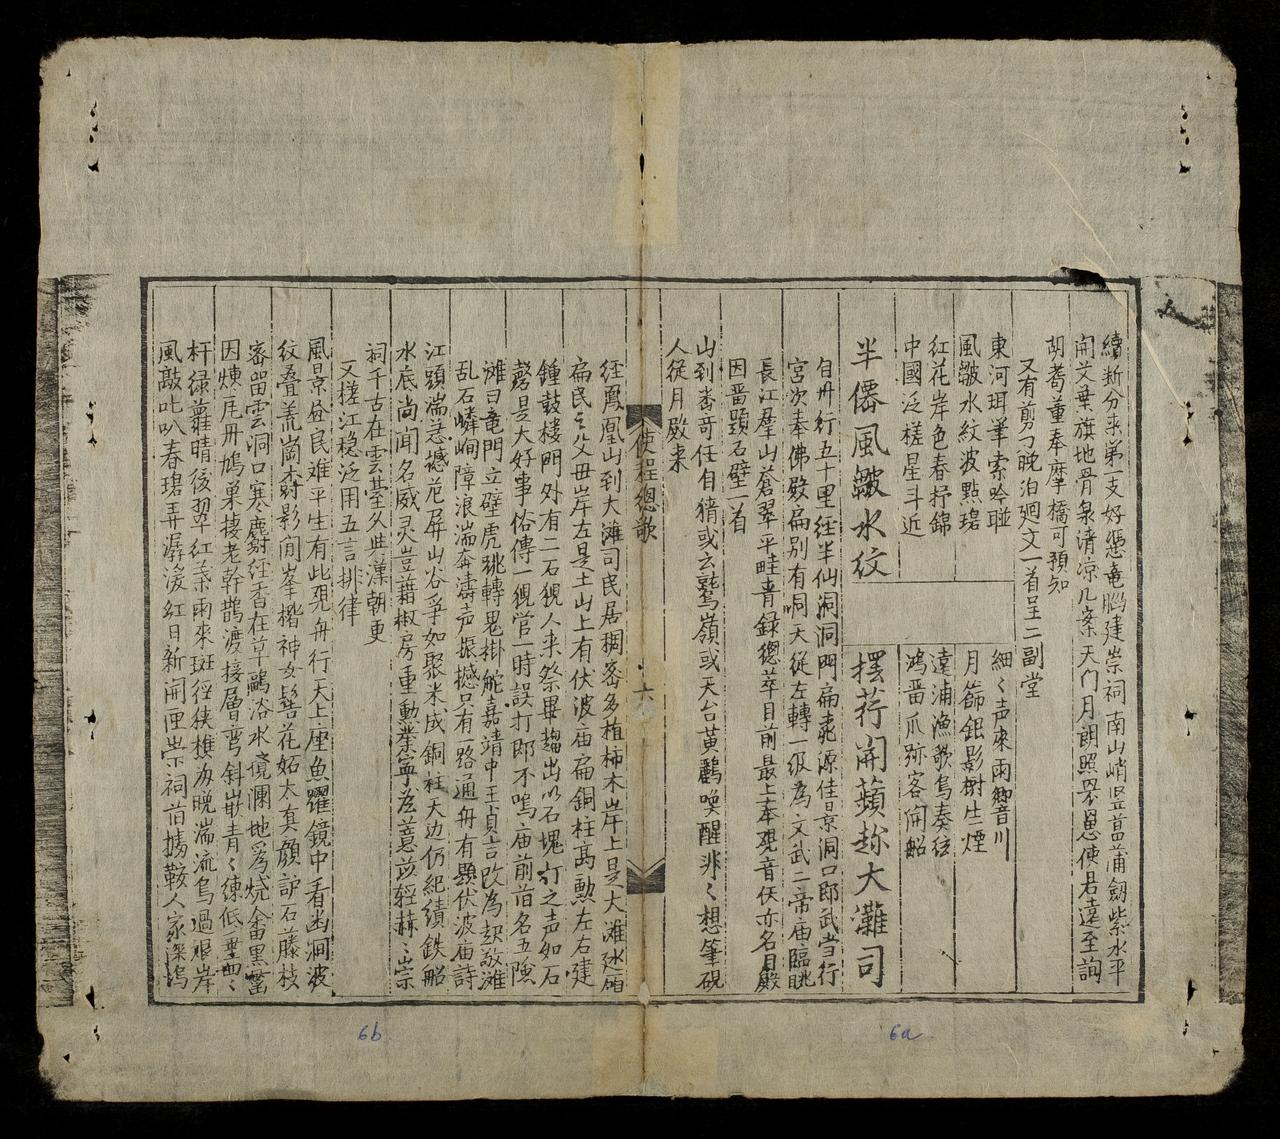 續斷分来弟支好憑竜腦建崇祠南山峭竖菖蒲劔紫水平
開艾葉旗地骨泉清凉几案天门月朗照罘罳使君遠至詢
胡耇董奉摩橋可預知
又有剪刁晚泊廻文一首呈二副堂
東河珥筆索吟聯
細〻聲來雨響川
風皺水紋波點碧
月篩銀影樹生煙
紅花岸色春抒錦
遠浦漁歌鳥奏絃
中國泛槎星斗近
鴻畱爪跡客開船
半僊風皺水紋
擺荇開蘋趂大灘司
自舟行五十里經半仙洞洞門扁桃源佳景洞口郎武当行
宮次奉佛殿扁别有洞天從左轉一级為文武二帝庙臨眺
長江羣山蒼翠平畦青録緫萃目前最上奉覌音佚亦名月殿
因畱题石壁一首
山到畨哥任自猜或云鷲嶺或天台黄鸝喚醒非〻想筆硯
人從月殿来
使程總歌
六
经鳳凰山到大滩司民居稠密多植柿木岸上是大滩廵廂
扁民之父母岸左是土山上有伏波庙扁銅柱高勲左右建
鍾鼓楼門外有二石䝨人来祭畢趨出以石塊打之声如石
磬是大好事俗傳一覌官一時誤打即不鳴庙前首名五險
滩曰竜門立壁虎跳轉鬼掛舵嘉靖中王貞言改為起敬滩
乱石嶙峋障浪湍奔濤声振撼只有一路通舟有题伏波庙詩
江頭湍急撼花屏山谷孚如聚米成銅柱天边仍紀績鉄船
水底尚聞名威灵豈藉椒房重勳業寧為薏苡輕赫〻崇
祠千古在雲基久典漢朝更
又搓江稳泛用五言排律
風景益民难平生有此覌舟行天上座魚躍鏡中看幽洞波
紋叠荒崗森影间峯楷神女髻花妬太真顔部石藤枝
密留雲洞口寒麝经香在草鷗浴水憢瀾地為燒畬黑窰
因煉瓦丹鳩巢棲老幹鵲渡接層彎斜嵌青〻練低垂曲〻
杆绿蘿晴後翌紅葉雨來斑徑狹樵为晚湍流鳥過艰岸
風敲叱叭春碧弄潺湲紅日新開匣崇祠首擄鞍人家深塢
6b
6a